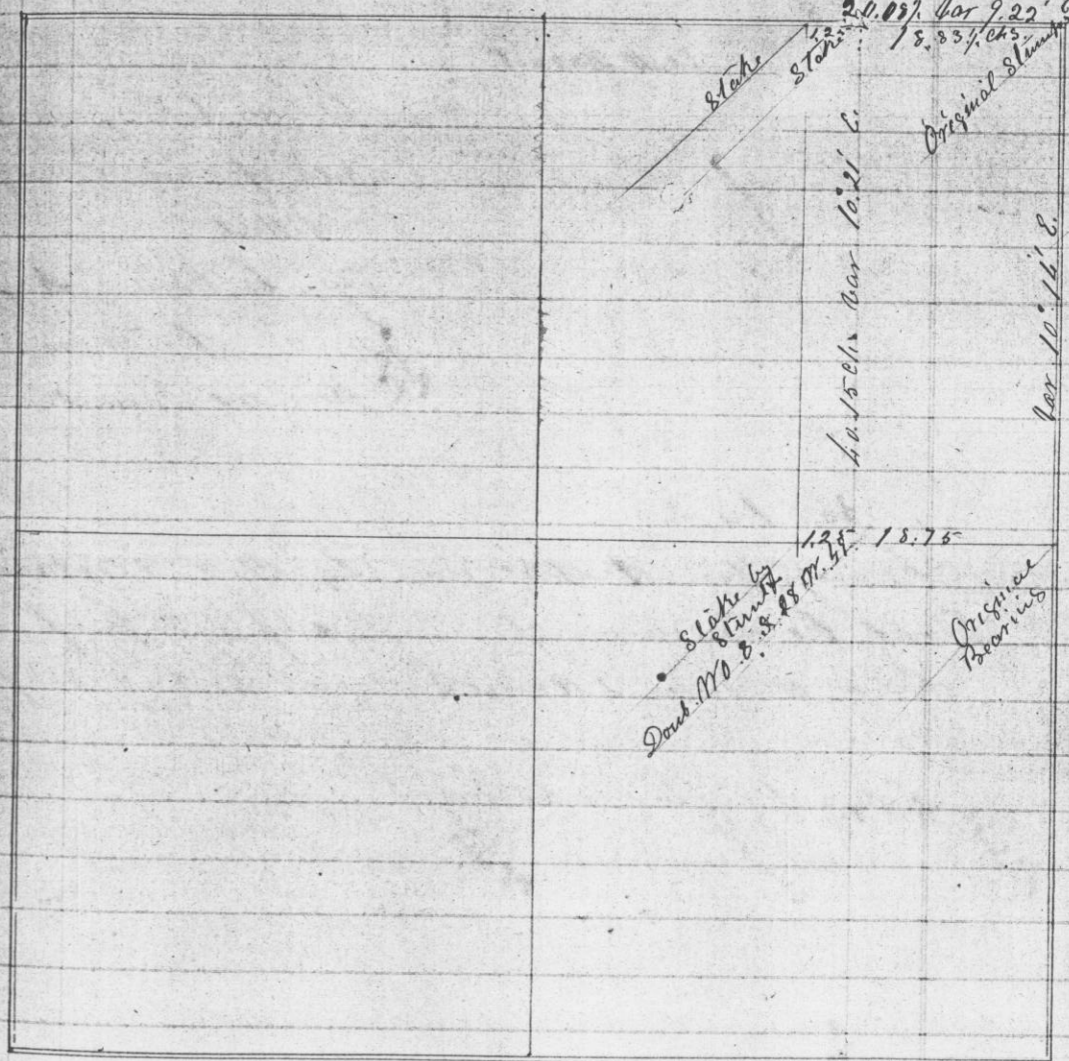 20.08½ Var 9.22'
1.25 18.83½ chs
Stake
Stake
Original Stump
40.15 ch. Var 10°.21' E.
Var. 10°.16' E.
1.25 18.75
Stake by
Stump
Doub. W.O. 8. S. 28 W. 51
Original
Bearing